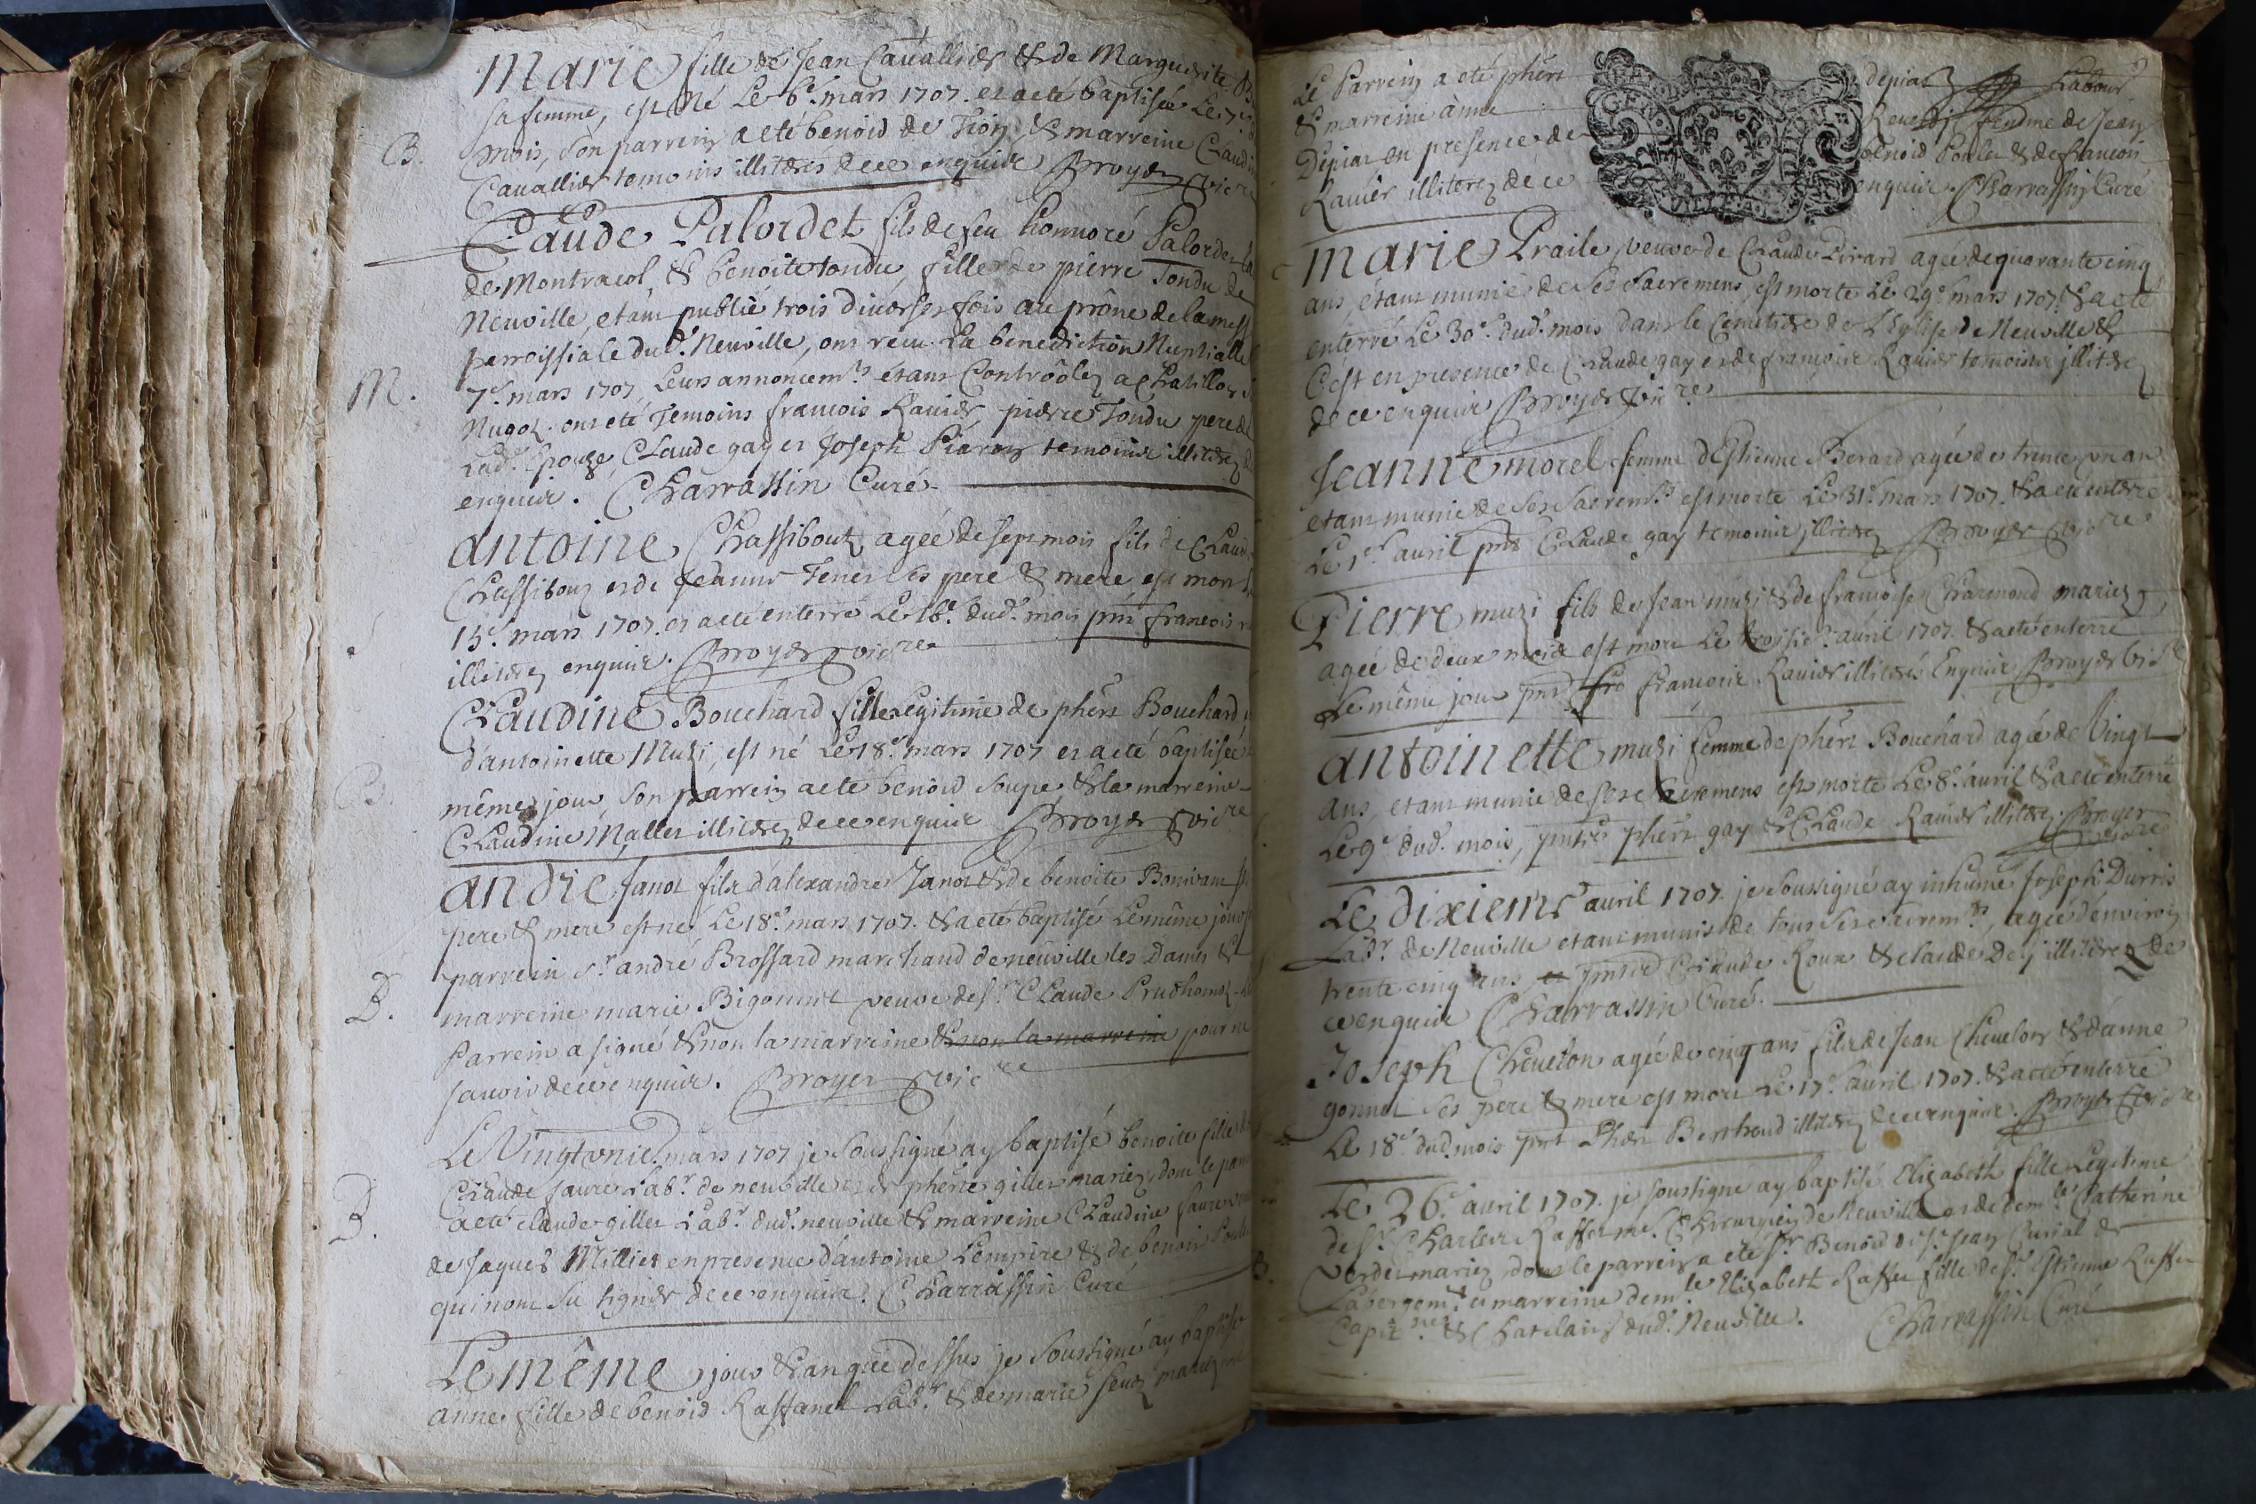 Marie fille de Jean Cavallier & de Marguerite
sa femme, est Né Le 6e mars 1707. et a eté baptisée Le 7e
B. mois, son parrein a eté benoid de Tion & marreine Claudi
Cavallier temoins illiterés de ce enquis Broyer vicre
Claude Palordet fils de feu honnoré Palordet
de Montracol, & benoite tondu fille de pierre Tondu de
Neuville, etant publié trois diverses fois au prône de la mess
perroissiale dud. Neuville, ont recu La benediction Nuptialle
M. 7e mars 1707, Leurs annoncemts étant Contrôlez a Chatillon
ont eté Temoins francois Ravier, pierre Tondu pere de
Lad. Epouze Claude gay et Joseph temoins illiterez
enquis. Charrassin Curé
antoine Chassibout, agée de sept mois fils de Claud
Chassibout et de Jeanne Tener ses pere & mere est mort
15e mars 1707. et a eté enterré Le 16e dud. mois pnt francois
illiterez enquis. Broyer vicre
Claudine Bouchard fille Legitime de phert Bouchard
d'antoinette Muzi, est né Le 18e mars 1707 et a eté baptisée
B. même jour son parrein a eté benoid soupe & la marreine
Claudine Mallet illiterez de ce enquis Broyer vicre
andré Janot fils d'alexandre Janot & de benoite
pere & mere est né Le 18e mars 1707. & a eté baptisé Le même jour
parrein sr andré Brossard marchand de neuville les Dames &
B. marreine marie Bigonnet veuve de sr Claude Prudhomme
Parrein a signé & non la marreine & non la marreine pour ne
savoir de ce enquis. Broyer vicre
Le Vingt unie. mars 1707 je soussigné ay baptisé benoite fille de
Claude faure Labr. de neuville et de pherie gillet mariez, dont le parr
B. a eté claude gillet Labr. dud. neuville & marreine Claudine faure
de Jaques Milliet en presence d'antoine Lempire & de benoit
qui n'ont su signer de ce enquis. Charrassin Curé
Le même jour & an que dessus je soussigné ay baptisé
anne fille de benoid Raffanel Labr. & de marie mariez
Le Parrein a eté phert depiat Labour
& marreine anne femme de Jean
Depiat en presence de benoid & de francois
Ravier illiterez de ce enquis. Charrassin Curé
marie Praile, veuve de Claude Livard agée de quarante cinq
ans, étant munie de ses sacremens, est morte Le 29e mars 1707. & a eté
enterré Le 30e dud. mois dans le cemetiere de L'Eglise de Neuville &
C'est en presence de Claude gay et de francois Ravier temoins illiterez
de ce enquis Broyer vicre
Jeanne morel femme d'Estienne Berard agée de trente un an
etant munie de ses sacremts est morte Le 31e mars 1707. & a eté enterré
Le 1er avril pnt Claude gay temoins illiterez Broyer vicre
Pierre muzi fils de Jean muzi & de francoise Charmond mariez
agée de deux mois est mort Le troisie. avril 1707. & a eté enterré
Le même jour pnt fro francois Ravier illiterés Enquis Broyer vicre
antoinette muzi femme de phert Bouchard agée de Vingt
ans, etant munie de ses sacremens est morte Le 8e avril & a eté enterré
Le 9e dud. mois, pnts phert gay & Claude Ravier illiterez Broyer
vicre
Le dixieme avril 1707. je soussigné ay inhumé Joseph Durris
Labr. de Neuville etant munis de tous ses sacremts, agée d'environ
trente cinq ans Claude Roux & claude Dej illiterez de
ce enquis Charrassin Curé.
Joseph Cheuelon agée de cinq ans fils de Jean Cheuelon & d'anne
gonnet ses pere & mere est mort Le 17e avril 1707. & a eté enterré
Le 18e dud. mois pnt Pher Berthoud illiterez de ce enquis. Broyer vicre
Le 26e avril 1707. je soussigné ay baptisé Elizabeth fille Legitime
de sr Charles Raffer me. Chirurgien de Neuville et de demle Catherine
Verdet mariez dont le parrein a eté sr Benoid Curial de
B. Labergemt & marreine demle Elizabeth Raffer fille de sr Estienne Raffer
Capitnes & Chatelain dud. Neuville. Charrassin Curé